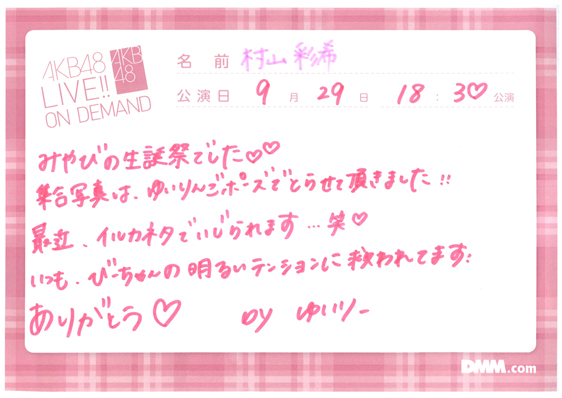 AKB48
LIVE!!
ON DEMAND
AKB
48
名前 村山彩希
公演日 9月29日 18:30♡公演
みやびの生誕祭でした♡♡
集合写真は、ゆいりんごポーズでとらせて頂きました!!
最近、イルカネタでいじられます…笑♡
いつも、びーちゃんの明るいテンションに救われてます:
ありがとう♡ by ゆいりー
DMM.com